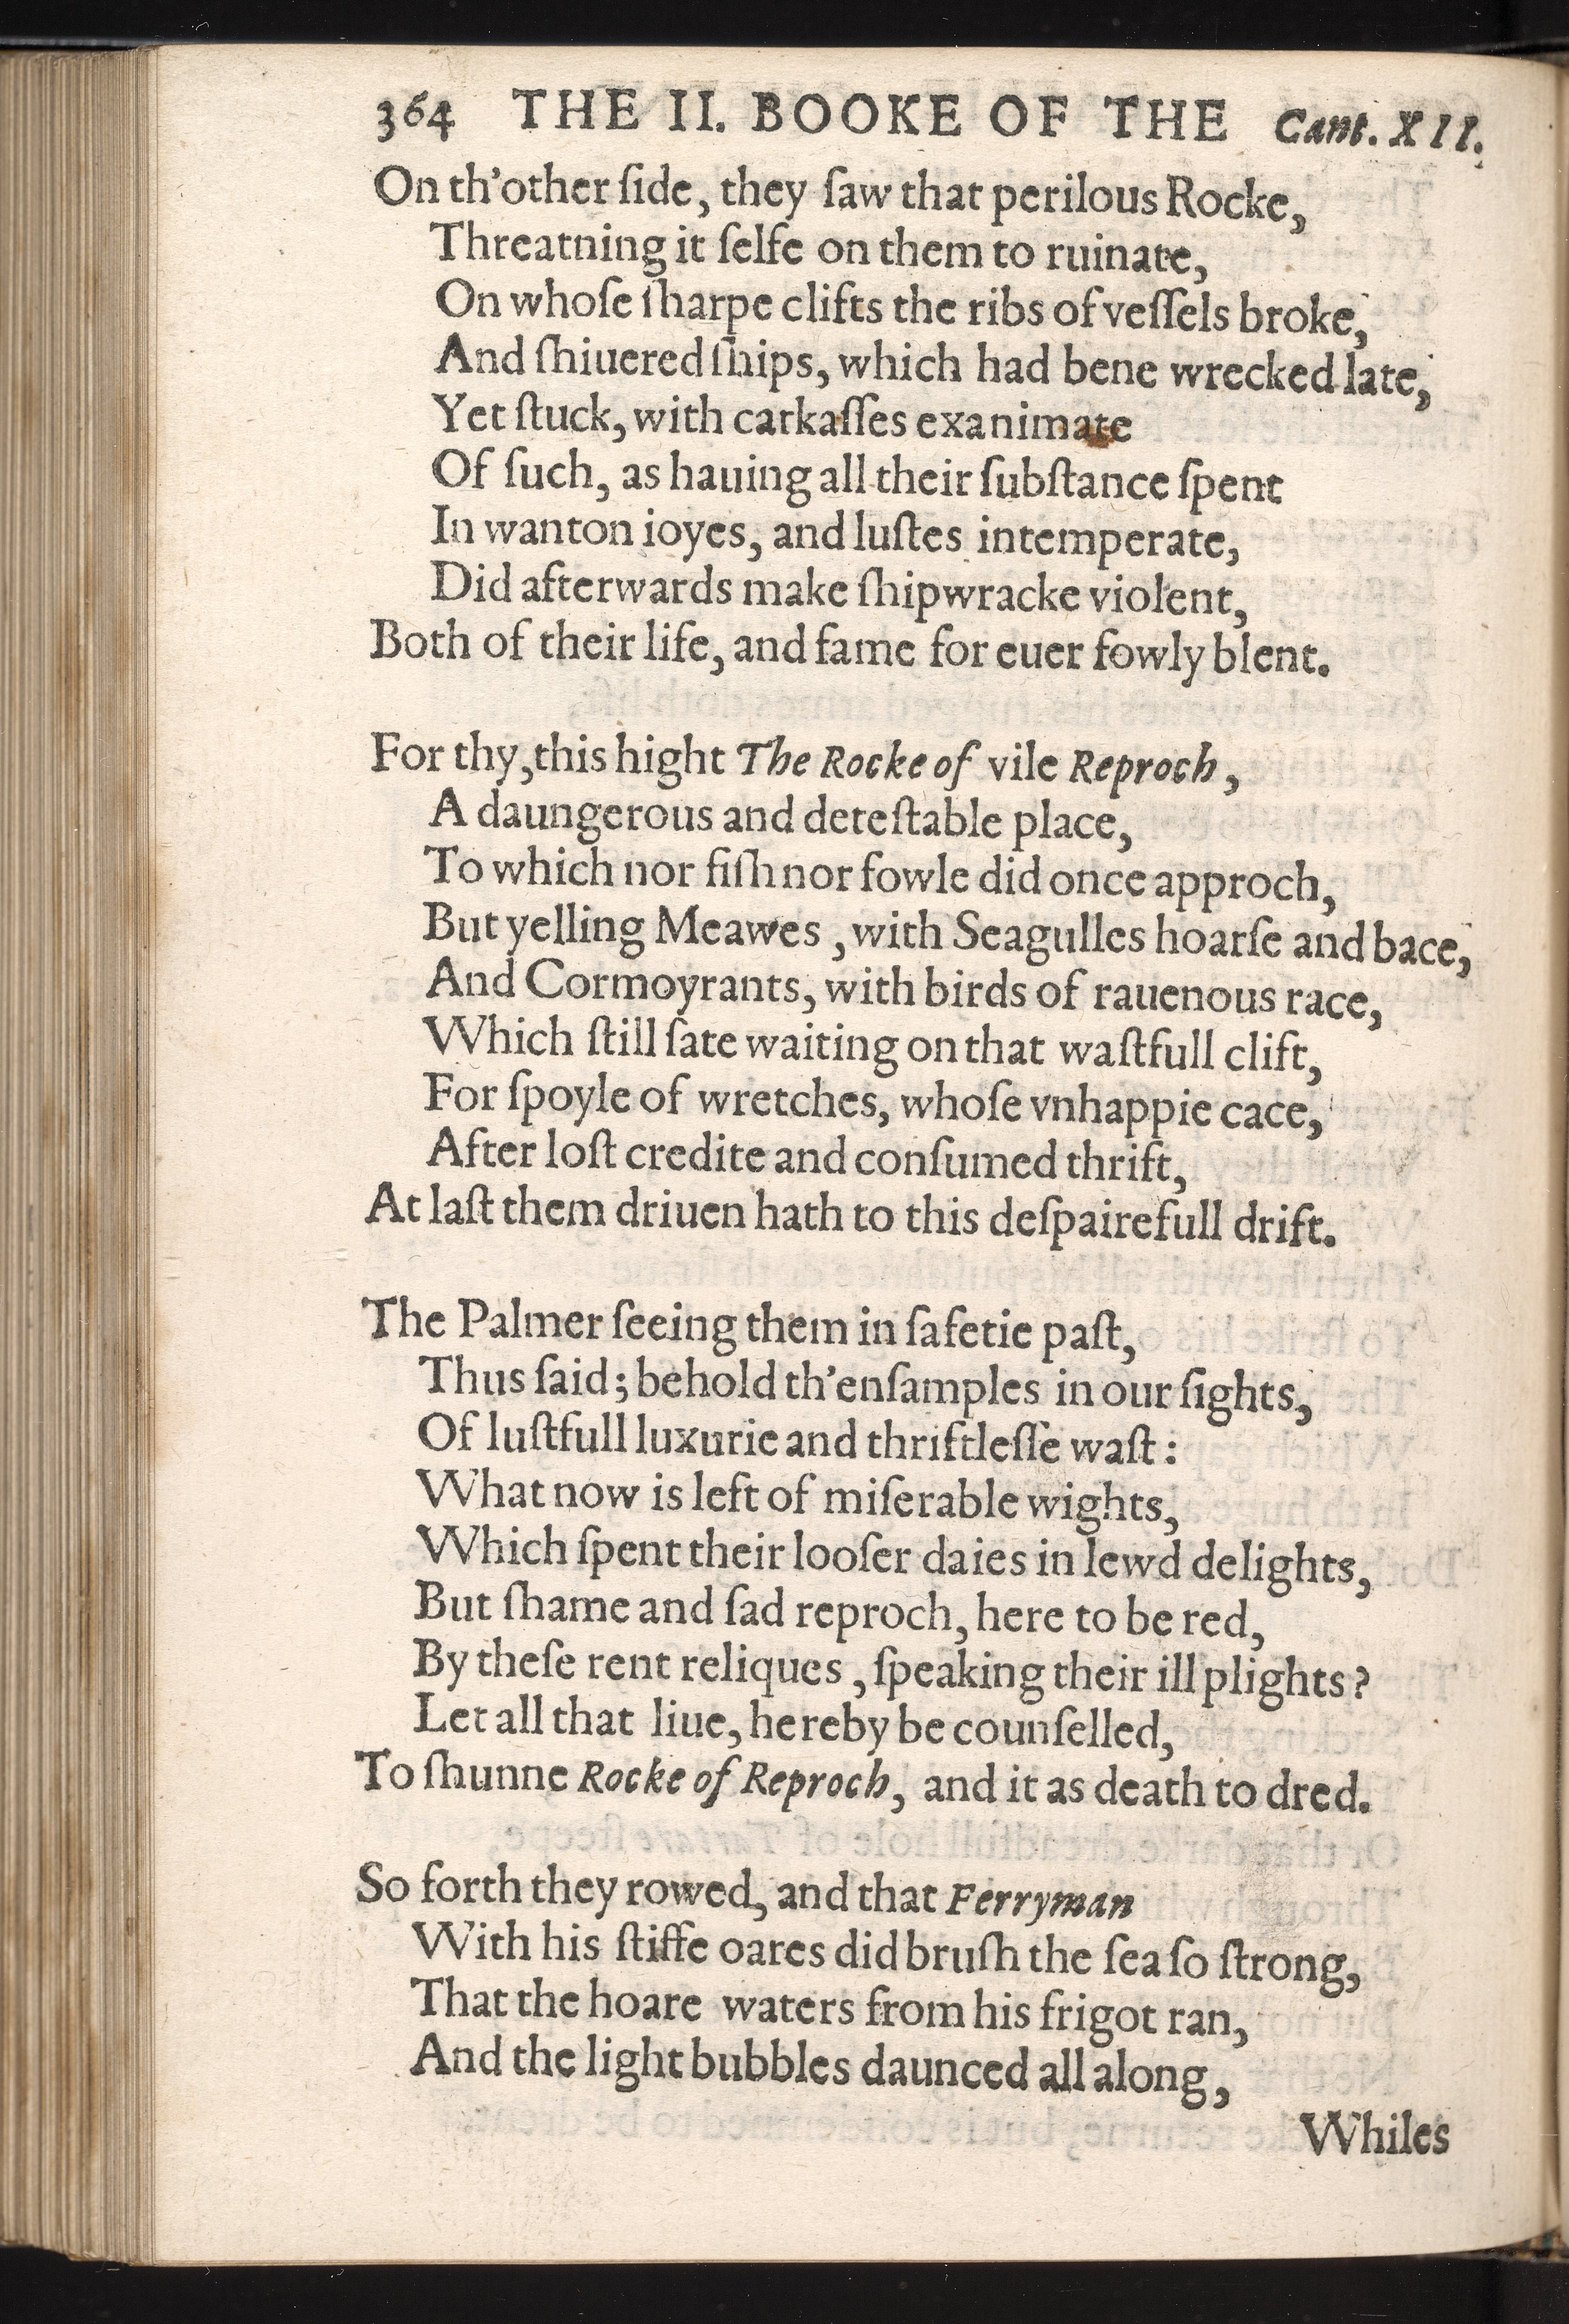 364 THE II. BOOKE OF THE Cant. XII.
On th'other ſide, they ſaw that perilous Rocke,
Threatning it ſelfe on them to ruinate,
On whoſe ſharpe clifts the ribs of veſſels broke,
And ſhiuered ſhips, which had bene wrecked late,
Yet ſtuck, with carkaſſes exanimate
Of ſuch, as hauing all their ſubſtance ſpent
In wanton ioyes, and luſtes intemperate,
Did afterwards make ſhipwracke violent,
Both of their life, and fame for euer fowly blent.
For thy, this hight The Rocke of vile Reproch,
A daungerous and deteſtable place,
To which nor fiſh nor fowle did once approch,
But yelling Meawes, with Seagulles hoarſe and bace,
And Cormoyrants, with birds of rauenous race,
Which ſtill ſate waiting on that waſtfull clift,
For ſpoyle of wretches, whoſe vnhappie cace,
After loſt credite and conſumed thrift,
At laſt them driuen hath to this deſpairefull drift.
The Palmer ſeeing them in ſafetie paſt,
Thus ſaid; behold th'enſamples in our ſights,
Of luſtfull luxurie and thriftleſſe waſt:
What now is left of miſerable wights,
Which ſpent their looſer daies in lewd delights,
But ſhame and ſad reproch, here to be red,
By theſe rent reliques, ſpeaking their ill plights?
Let all that liue, hereby be counſelled,
To ſhunne Rocke of Reproch, and it as death to dred.
So forth they rowed, and that Ferryman
With his ſtiffe oares did bruſh the ſea ſo ſtrong,
That the hoare waters from his frigot ran,
And the light bubbles daunced all along,
Whiles